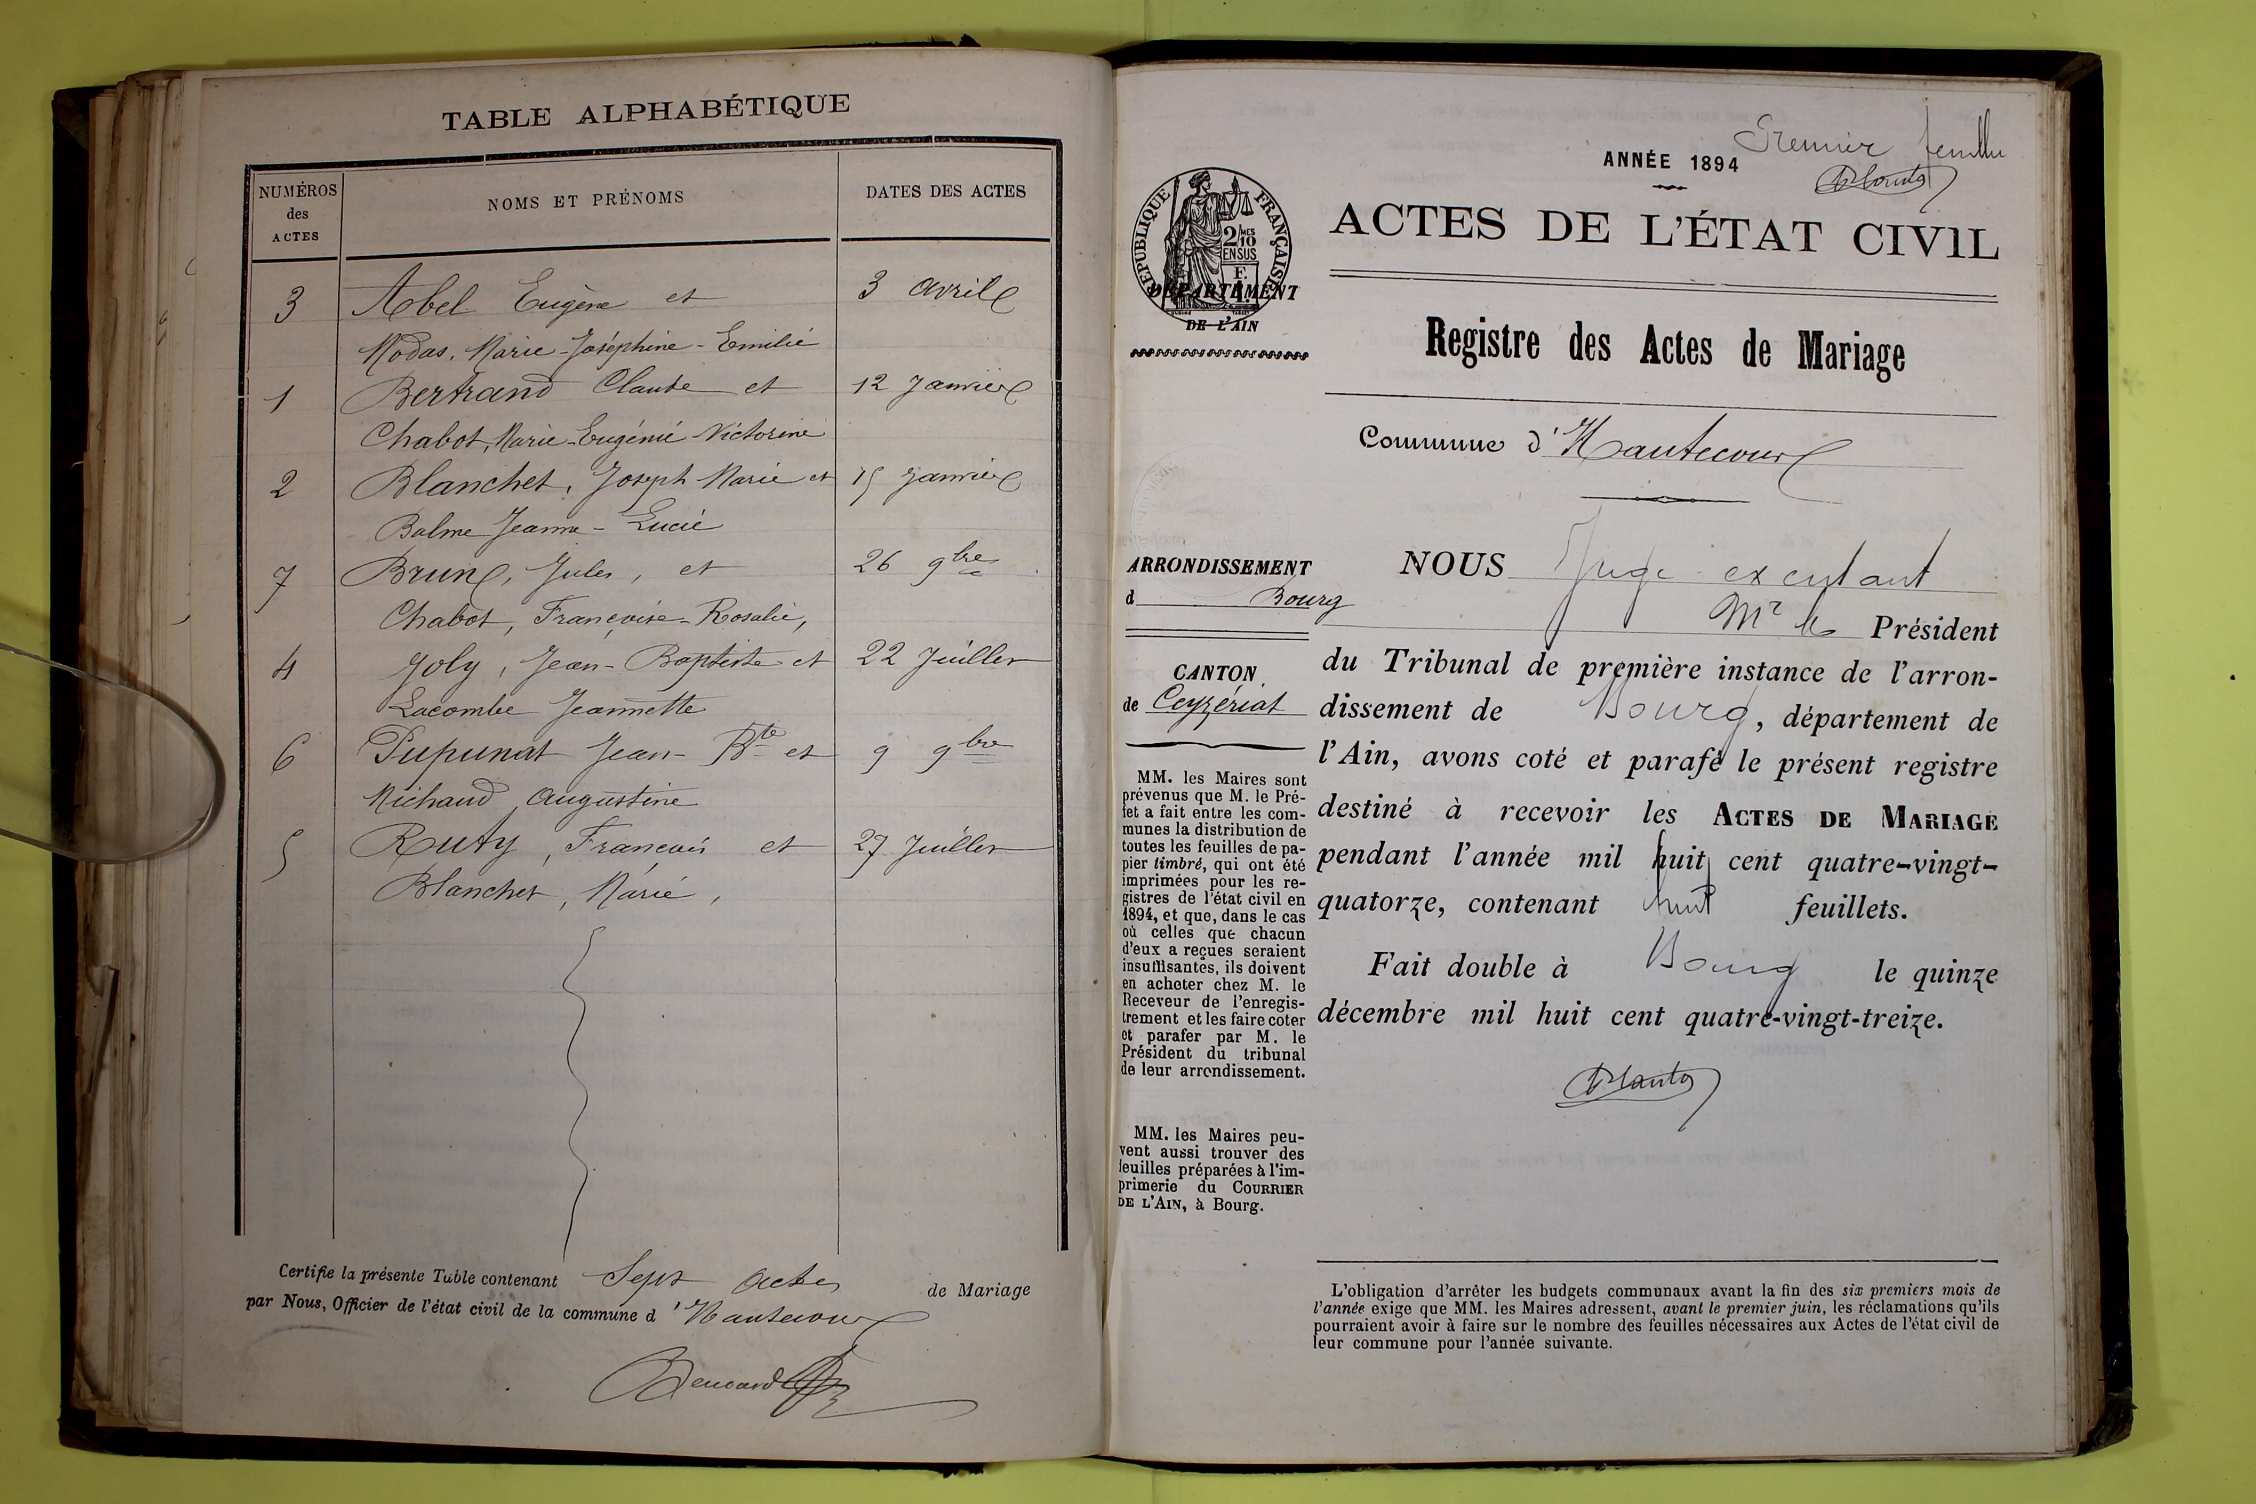 TABLE ALPHABÉTIQUE
NUMÉROS des ACTES
NOMS ET PRÉNOMS
DATES DES ACTES
3 Abel Eugène et 3 avril
Modas, Marie-Joséphine-Emilie
1 Bertrand Claude et 12 Janvier
Chabot, Marie-Eugénie Victorine
2 Blanchet, Joseph Marie et 15 Janvier
Balme Jeanne-Lucie
7 Brun, Jules, et 26 9bre
Chabot, Françoise-Rosalie,
4 Joly, Jean-Baptiste et 22 Juillet
Lacombe Jeannette
6 Pupunat Jean-Bte et 9 9bre
Michaud Augustine
5 Ruty, François et 27 Juillet
Blanchet, Marie,
Certifie la présente Table contenant Sept actes de Mariage
par Nous, Officier de l'état civil de la commune d'Hautecour
Premier feuillet
ANNÉE 1894
RÉPUBLIQUE FRANÇAISE
2/10 MES
EN SUS
DÉPARTEMENT
DE L'AIN
ACTES DE L'ÉTAT CIVIL
Registre des Actes de Mariage
Commune d'Hautecour
ARRONDISSEMENT
d Bourg
CANTON
de Ceyzériat
MM. les Maires sont
prévenus que M. le Pré-
fet a fait entre les com-
munes la distribution de
toutes les feuilles de pa-
pier timbré, qui ont été
imprimées pour les re-
gistres de l'état civil en
1894, et que, dans le cas
où celles que chacun
d'eux a reçues seraient
insuffisantes, ils doivent
en acheter chez M. le
Receveur de l'enregis-
trement et les faire coter
et parafer par M. le
Président du tribunal
de leur arrondissement.
MM. les Maires peu-
vent aussi trouver des
feuilles préparées à l'im-
primerie du COURRIER
DE L'AIN, à Bourg.
NOUS Juge
Mr le Président
du Tribunal de première instance de l'arron-
dissement de Bourg, département de
l'Ain, avons coté et parafé le présent registre
destiné à recevoir les ACTES DE MARIAGE
pendant l'année mil huit cent quatre-vingt-
quatorze, contenant huit feuillets.
Fait double à Bourg le quinze
décembre mil huit cent quatre-vingt-treize.
L'obligation d'arrêter les budgets communaux avant la fin des six premiers mois de
l'année exige que MM. les Maires adressent, avant le premier juin, les réclamations qu'ils
pourraient avoir à faire sur le nombre des feuilles nécessaires aux Actes de l'état civil de
leur commune pour l'année suivante.